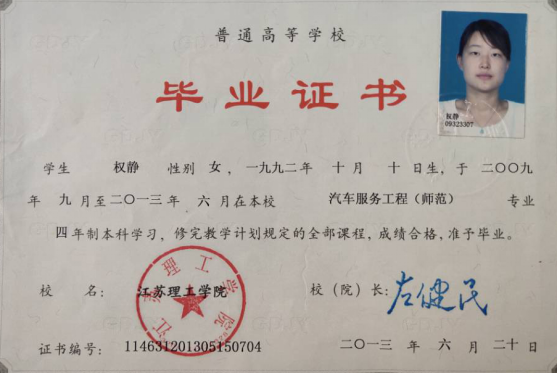 普通高等学校
毕业证书
权静
09323307
学生 权静 性别 女，一九九二年 十月 十日生，于 二〇〇九
年 九月至二〇一三年 六月在本校 汽车服务工程（师范） 专业
四年制本科学习，修完教学计划规定的全部课程，成绩合格，准予毕业。
校 名： 江苏理工学院 校（院）长：左健民
江苏理工学院
证书编号： 114631201305150704 二〇一三 年 六 月 二十日